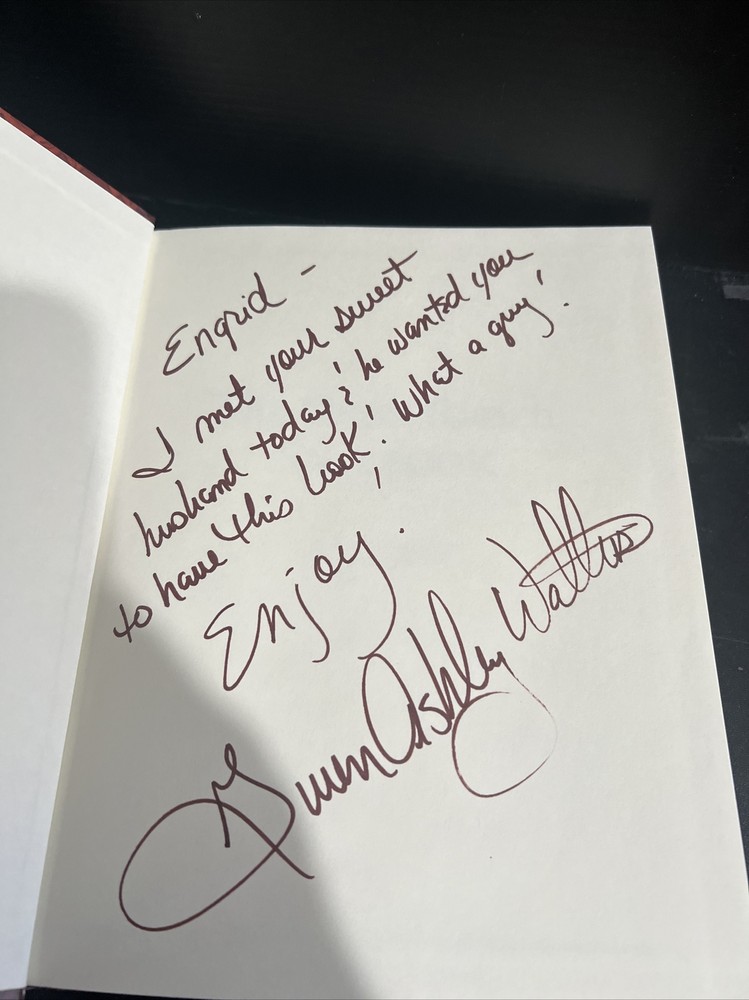 Engrid -
I met your sweet
husband today & he wanted you
to have this book! What a guy!
Enjoy!
Gwen Ashley Walters